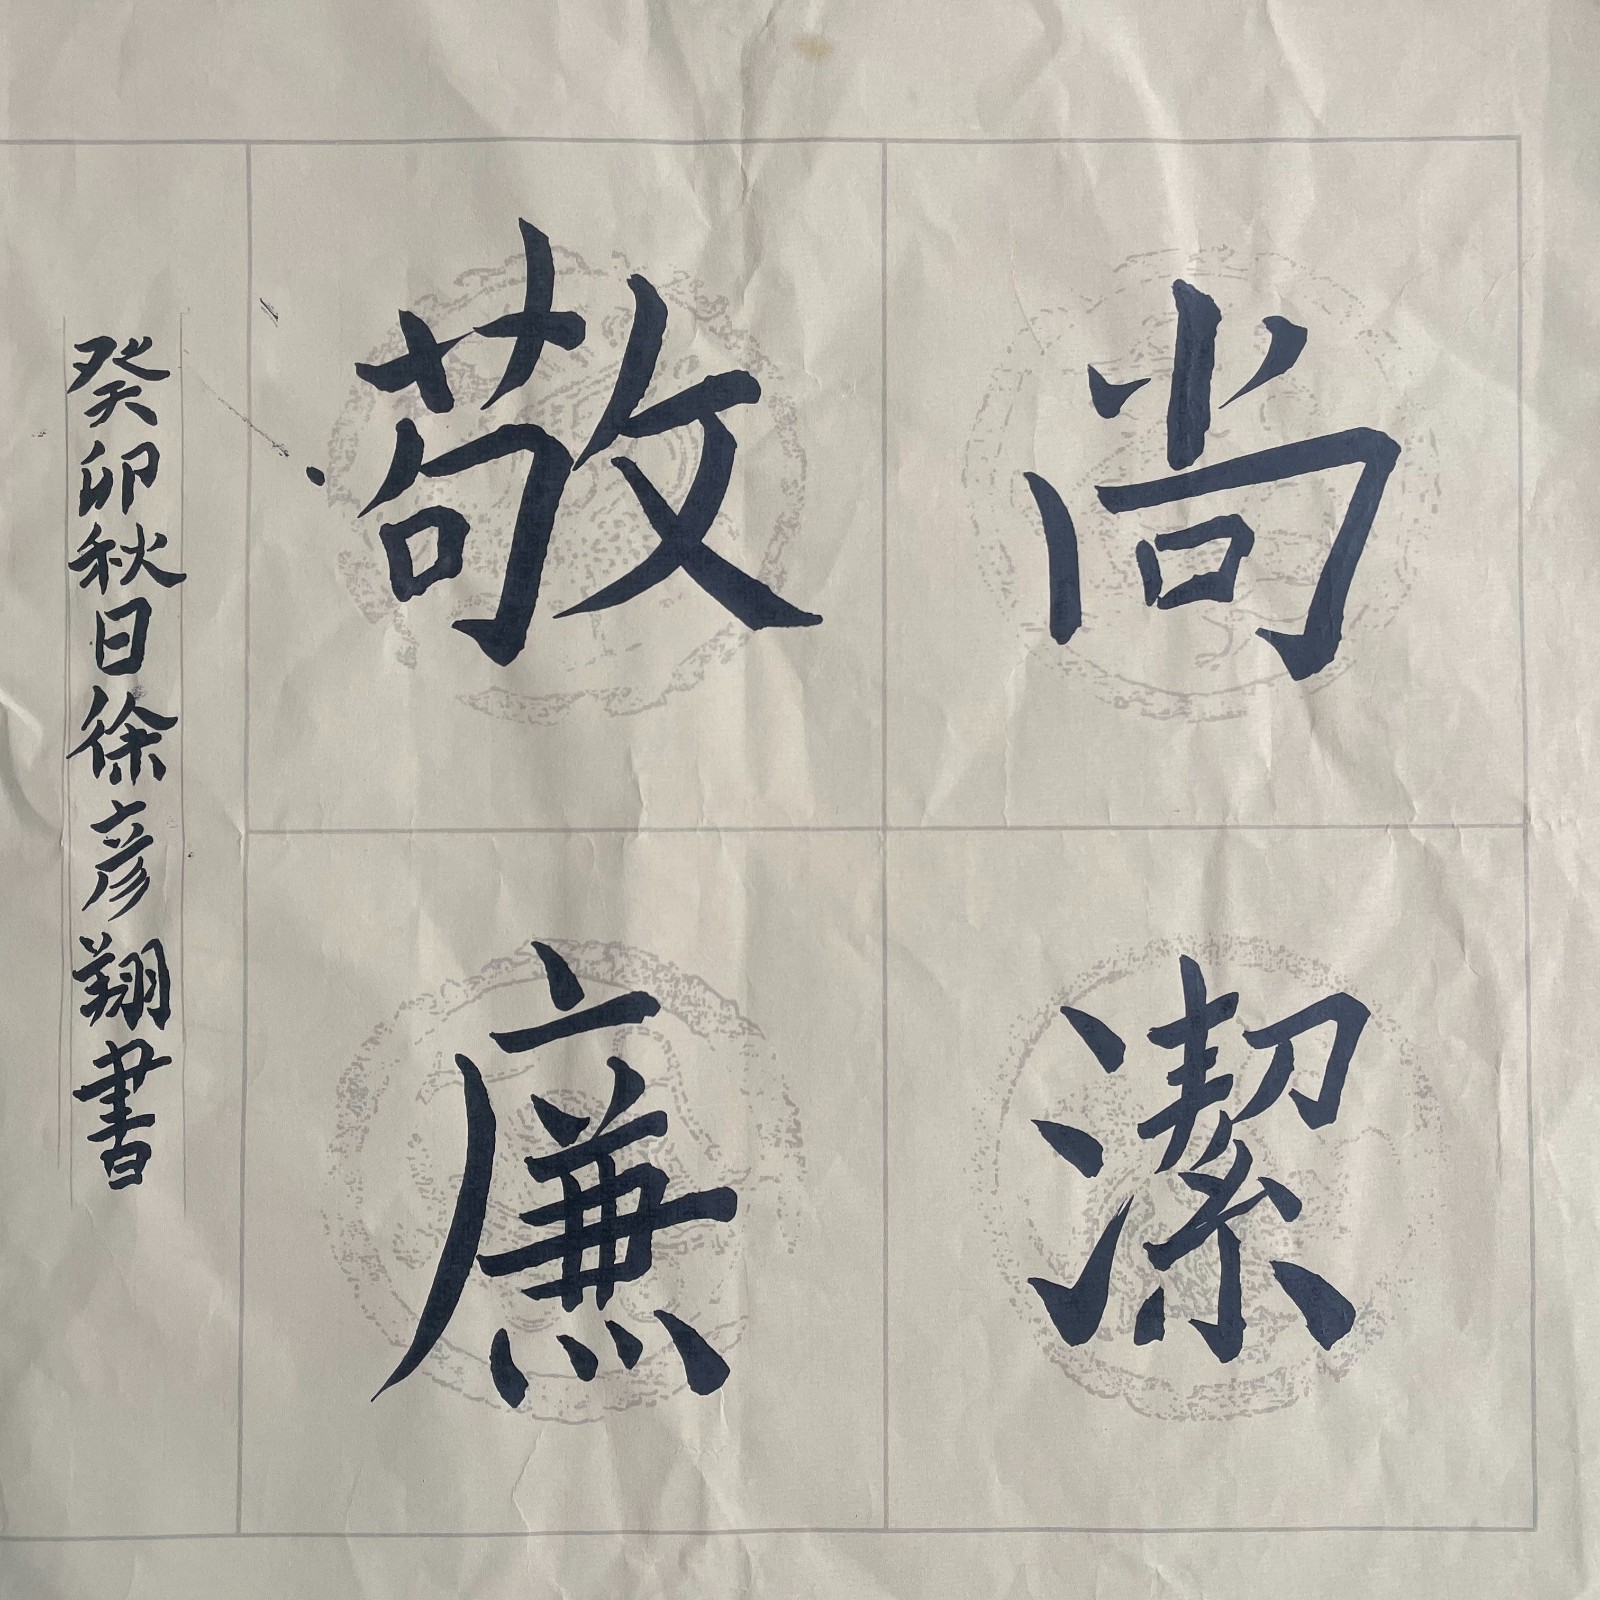 尚潔
敬廉
癸卯秋日徐彦翔書